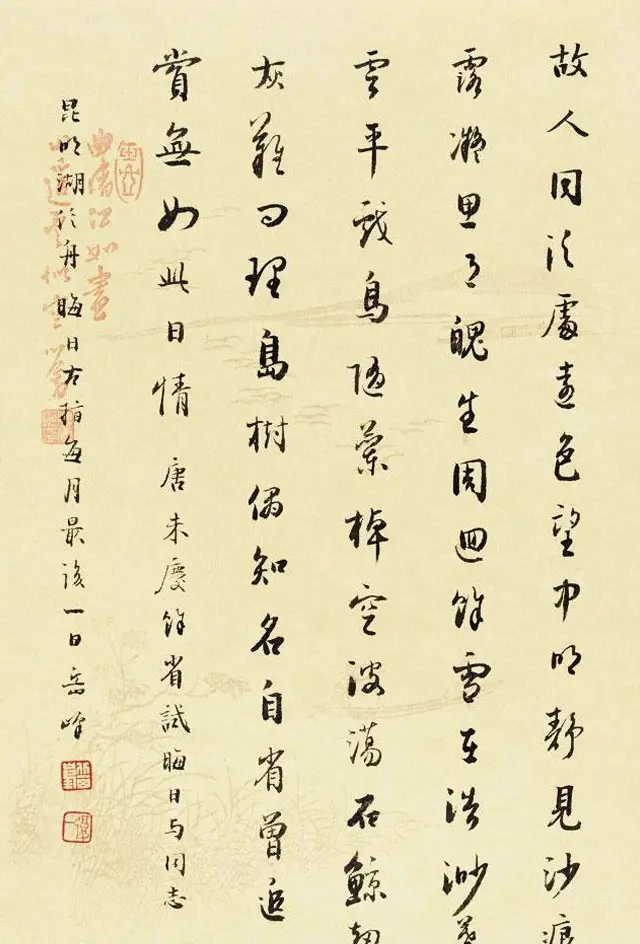 故人同泛處遠色望中明靜見沙痕
露凝思月魄生周迴餘雪在浩渺暮
雲平戲鳥隨蘭棹空波蕩石鯨劫
灰難問理島樹偶知名自省曾追
賞無如此日情 唐朱慶餘省試晦日与同志
昆明湖泛舟 晦日古指每月最後一日 岳峰